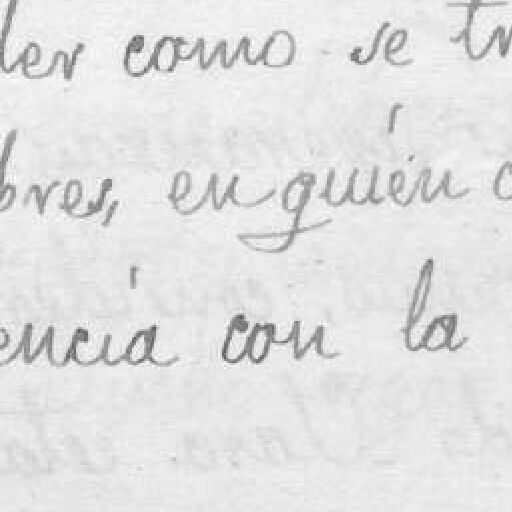 der como se tr
bres, en quién c
encia con la